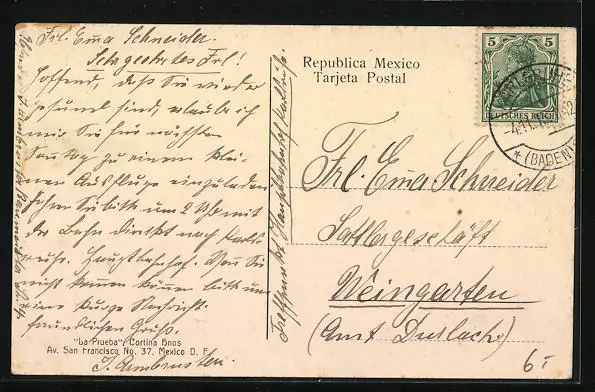 Frl. Ema Schneider.
Sehrgeehrtes Frl!
Hoffend, dass Sie wieder
gesund sind, erlaube ich
mir Sie für nächsten
Sonntag zu einem klei-
nen Ausfluge einzuladen
fahren Sie bitte um 2 Uhr mit
der Bahn direkt nach Karls-
ruhe. Hauptbahnhof. Wenn Sie
nicht kommen können bitte um
eine kurze Nachricht.
freundlichen Gruss.
J. Armbruster
"La Prueba", Cortina Hnos
Av. San Francisco No. 37. Mexico D. F.
Treffpunkt Hauptbahnhof Karlsruhe.
Republica Mexico
Tarjeta Postal
5 5
DEUTSCHES REICH
KARLSRUHE
* (BADEN)
Frl. Ema Schneider
Sattlergeschäft
Weingarten
(Amt Durlach)
6.-